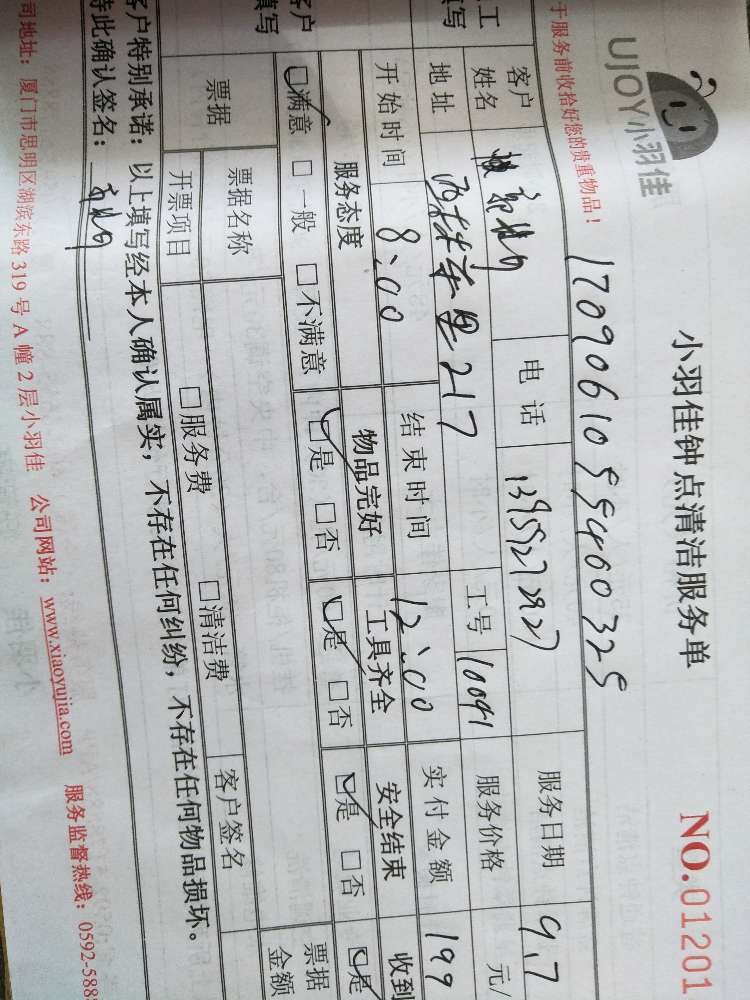 UJOY小羽佳
小羽佳钟点清洁服务单
NO.01201
于服务前收拾好您的贵重物品！
17090610594600325
工
填写
客户
姓名
电 话
13955272927
服务日期
9.7
地址
217
工号
10091
服务价格
元/
开始时间
8:00
结束时间
12:00
实付金额
199
客户
填写
服务态度
物品完好
工具齐全
安全结束
收到
☑满意 □一般 □不满意
☑是 □否
☑是 □否
☑是 □否
☑是
票据
票据名称
□服务费 □清洁费
票据
金额
开票项目
客户签名
客户特别承诺：以上填写经本人确认属实，不存在任何纠纷，不存在任何物品损坏。
特此确认签名：
司地址：厦门市思明区湖滨东路 319 号 A 幢 2 层小羽佳 公司网站：www.xiaoyujia.com 服务监督热线：0592-588